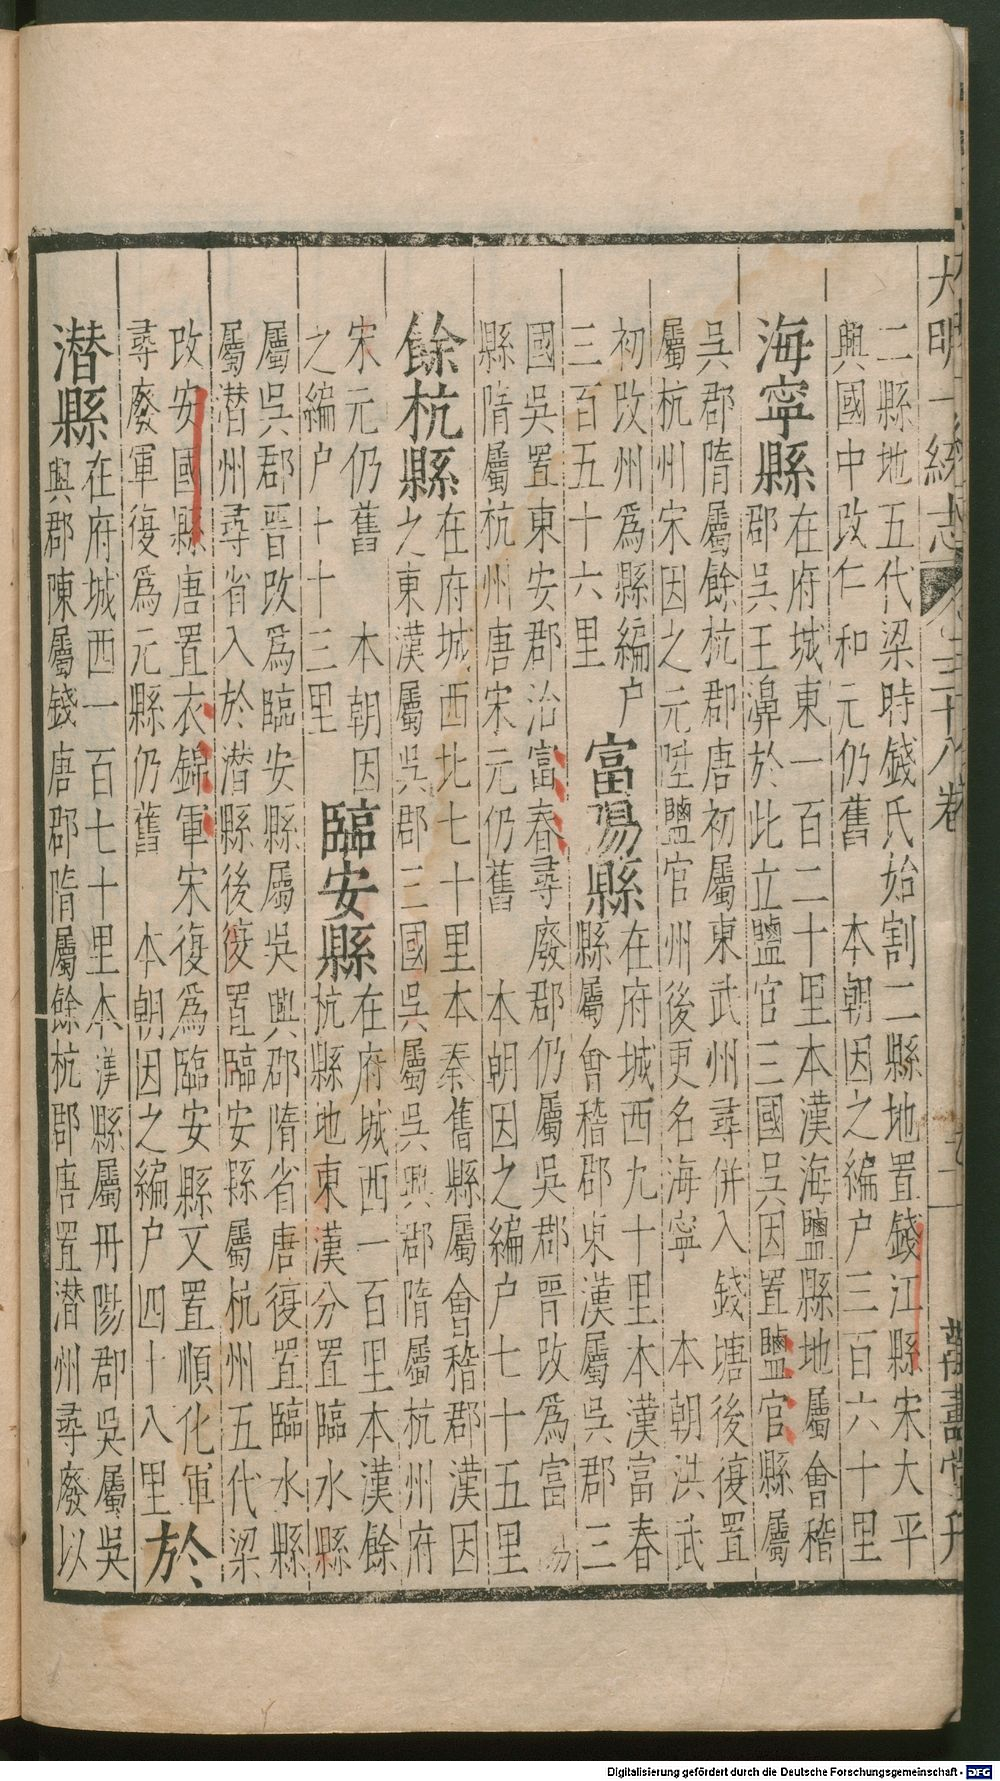 大明一統志 三十八卷
二縣地五代梁時錢氏始割二縣地置錢江縣宋大平
興國中改仁和元仍舊 本朝因之編户三百六十里
海寧縣在府城東一百二十里本漢海鹽縣地屬會稽
郡吳王濞於此立鹽官三國吳因置鹽官縣屬
吳郡隋屬餘杭郡唐初屬東武州尋併入錢塘後復置
屬杭州宋因之元陞鹽官州後更名海寧 本朝洪武
初改州爲縣編户
三百五十六里
富陽縣在府城西九十里本漢富春
縣屬會稽郡東漢屬吳郡三
國吳置東安郡治富春尋廢郡仍屬吳郡晉改爲富陽
縣隋屬杭州唐宋元仍舊 本朝因之編户七十五里
餘杭縣在府城西北七十里本秦舊縣屬會稽郡漢因
之東漢屬吳郡三國吳屬吳興郡隋屬杭州府
宋元仍舊 本朝因
之編户十十三里
臨安縣在府城西一百里本漢餘
杭縣地東漢分置臨水縣
屬吳郡晉改爲臨安縣屬吳興郡隋省唐復置臨水縣
屬潛州尋省入於潛縣後復置臨安縣屬杭州五代梁
改安國縣唐置衣錦軍宋復爲臨安縣又置順化軍
尋廢軍復爲元縣仍舊 本朝因之編户四十八里
於
潛縣在府城西一百七十里本漢縣屬丹陽郡吳屬吳
興郡陳屬錢唐郡隋屬餘杭郡唐置潛州尋廢以
萬壽堂刊
Digitalisierung gefördert durch die Deutsche Forschungsgemeinschaft - DFG